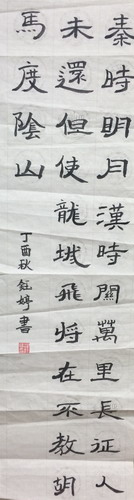 秦時明月漢時關萬里長征人
未還但使龍城飛将在不教胡
馬度陰山
丁酉秋鈺婷書